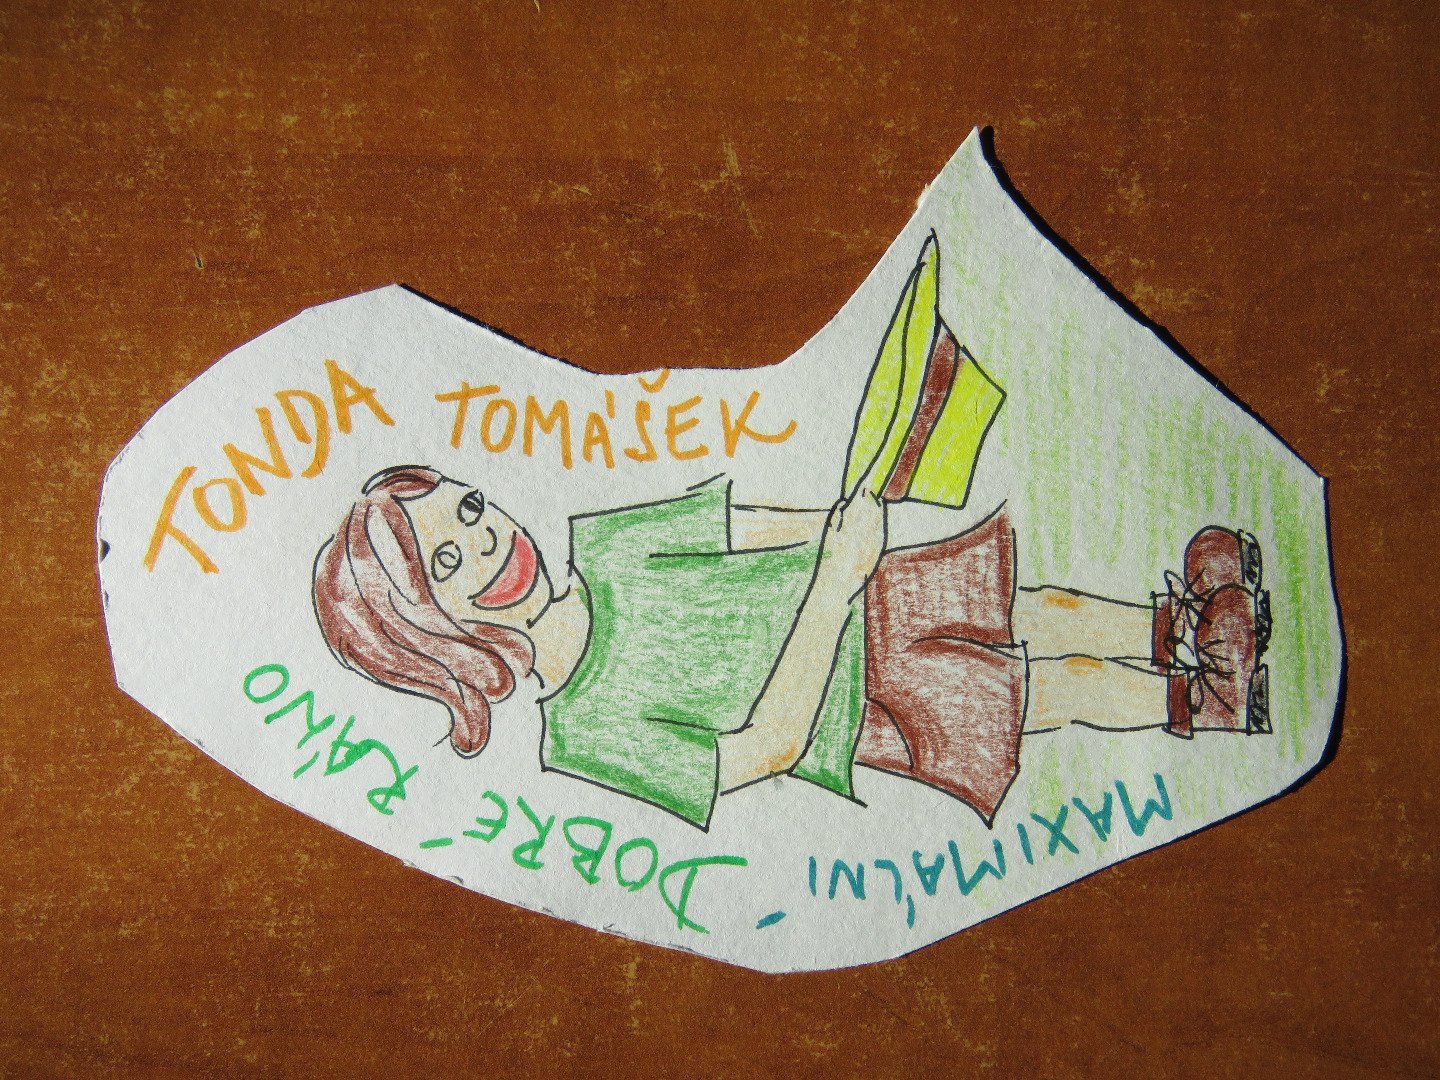 TONDA TOMÁŠEK
MAXIMÁLNÍ
DOBRÉ RÁNO